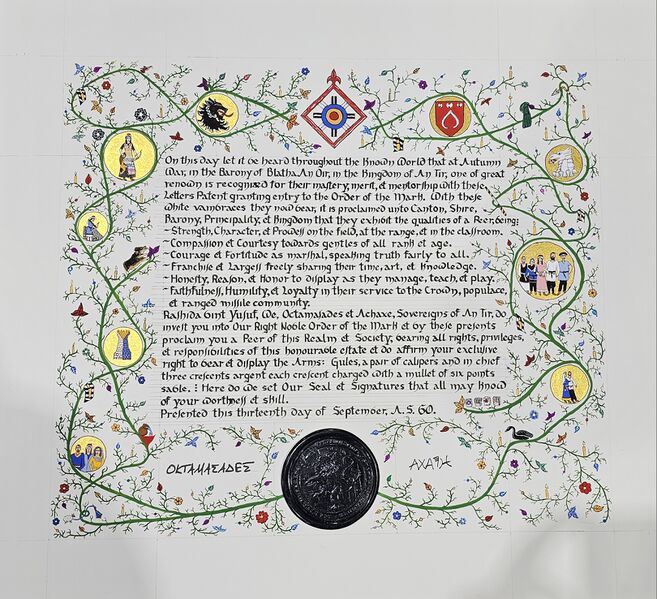 On this day let it be heard throughout the Known World that at Autumn
War, in the Barony of Blatha An Oir, in the Kingdom of An Tir, one of great
renown is recognized for their mastery, merit, & mentorship with these
Letters Patent granting entry to the Order of the Mark. With these
white vambraces they now bear, it is proclaimed unto Canton, Shire,
Barony, Principality, & Kingdom that they exhibit the qualities of a Peer, being:
~Strength, Character, & Prowess on the field, at the range, & in the classroom.
~Compassion & Courtesy towards gentles of all rank & age.
~Courage & Fortitude as marshal, speaking truth fairly to all.
~Franchise & Largess freely sharing their time, art, & knowledge.
~Honesty, Reason, & Honor to display as they manage, teach, & play.
~Faithfulness, Humility, & Loyalty in their service to the Crown, populace,
& ranged missile community.
Rashida bint Yusuf, We, Octamasades & Achaxe, Sovereigns of An Tir, do
invest you into Our Right Noble Order of the Mark & by these presents
proclaim you a Peer of this Realm & Society, bearing all rights, privileges,
& responsibilities of this honourable estate & do affirm your exclusive
right to bear & display the Arms: Gules, a pair of calipers and in chief
three crescents argent each crescent charged with a mullet of six points
sable. : Here do we set Our Seal & Signatures that all may know
of your worthiness & skill.
Presented this thirteenth day of September, A.S. 60.
ΟΚΤΑΜΑΣΑΔΕΣ